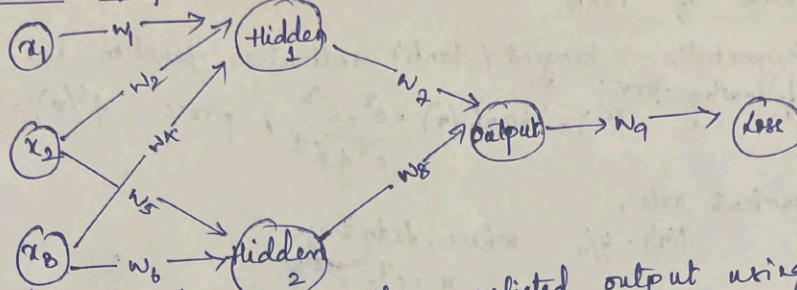 x1 w1 Hidden 1
w2 w7
x2 w4 output w9 Loss
w5 w8
x3 w6 Hidden 2
output using